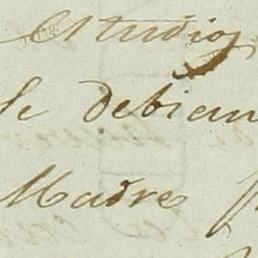 estudios
se debian
Madre